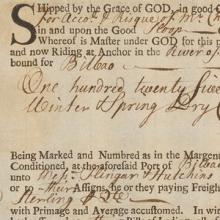 SHipped by the Grace of GOD, in good O
for Acco.t & Risque of M.r
in and upon the Good Sloop
Whereof is Master under GOD for this p
and now Riding at Anchor in the River of
bound for Bilbao
One hundred twenty five
Winter & Spring Dry
Being Marked and Numbred as in the Margent
Condition'd, at the aforesaid Port of Bilbao
unto Mess.rs & Hutchins
or to their Assigns, he or they paying Freight
Sterling
with Primage and Average accustomed. In wit